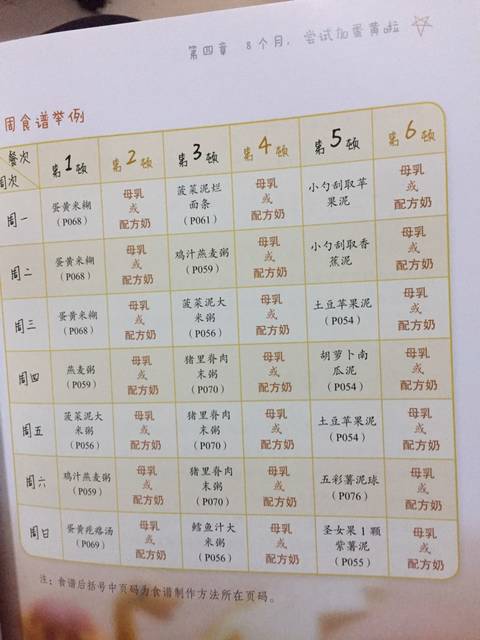 第四章 8个月，尝试加蛋黄啦
周食谱举例
餐次
周次
第1顿 第2顿 第3顿 第4顿 第5顿 第6顿
周一 蛋黄米糊（P068） 母乳或配方奶 菠菜泥烂面条（P061） 母乳或配方奶 小勺刮取苹果泥 母乳或配方奶
周二 蛋黄米糊（P068） 母乳或配方奶 鸡汁燕麦粥（P059） 母乳或配方奶 小勺刮取香蕉泥 母乳或配方奶
周三 蛋黄米糊（P068） 母乳或配方奶 菠菜泥大米粥（P056） 母乳或配方奶 土豆苹果泥（P054） 母乳或配方奶
周四 燕麦粥（P059） 母乳或配方奶 猪里脊肉末粥（P070） 母乳或配方奶 胡萝卜南瓜泥（P054） 母乳或配方奶
周五 菠菜泥大米粥（P056） 母乳或配方奶 猪里脊肉末粥（P070） 母乳或配方奶 土豆苹果泥（P054） 母乳或配方奶
周六 鸡汁燕麦粥（P059） 母乳或配方奶 猪里脊肉末粥（P070） 母乳或配方奶 五彩薯泥球（P076） 母乳或配方奶
周日 蛋黄疙瘩汤（P069） 母乳或配方奶 鳕鱼汁大米粥（P056） 母乳或配方奶 圣女果1颗紫薯泥（P055） 母乳或配方奶
注：食谱后括号中页码为食谱制作方法所在页码。